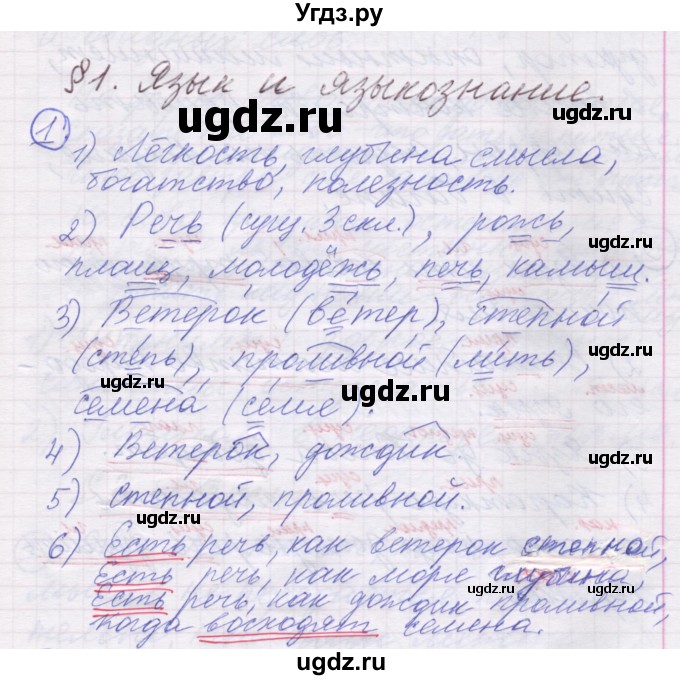 Угдз.ру
§1. Язык и языкознание.
1 1) Лёгкость, глубина смысла,
богатство, полезность.
2) Речь (сущ. 3 скл.), рожь,
плащ, молодёжь, печь, камыш.
3) Ветерок (ветер), степной
(степь), проливной (лить),
семена (семя).
4) Ветерок, дождик.
5) степной, проливной.
6) Есть речь, как ветерок степной,
Есть речь, как море глубина,
Есть речь, как дождик проливной,
когда восходят семена.
ugdz.ru
ugdz.ru
ugdz.ru
ugdz.ru
ugdz.ru
ugdz.ru
ugdz.ru
ugdz.ru
ugdz.ru
ugdz.ru
ugdz.ru